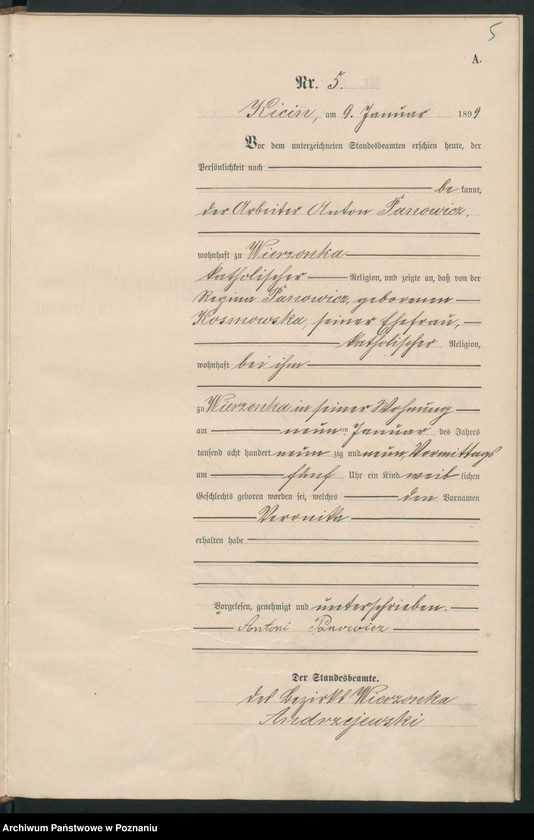 5
A.
Nr. 5.
Kicin, am 9. Januar 1899
Vor dem unterzeichneten Standesbeamten erschien heute, der
Persönlichkeit nach
be kannt,
der Arbeiter Anton Panowicz,
wohnhaft zu Wierzonka
katholischer Religion, und zeigte an, daß von der
Regina Panowicz, geborenen
Kosmowska, seiner Ehefrau,
katholischer Religion,
wohnhaft bei ihm
zu Wierzonka in seiner Wohnung
am neunten Januar des Jahres
tausend acht hundert neun zig und neun, Vormittags
um fünf Uhr ein Kind weib lichen
Geschlechts geboren worden sei, welches den Vornamen
Veronika
erhalten habe.
Vorgelesen, genehmigt und unterschrieben.
Antoni Panowicz
Der Standesbeamte.
des Bezirks Wierzonka
Andrzejewski
Archiwum Państwowe w Poznaniu